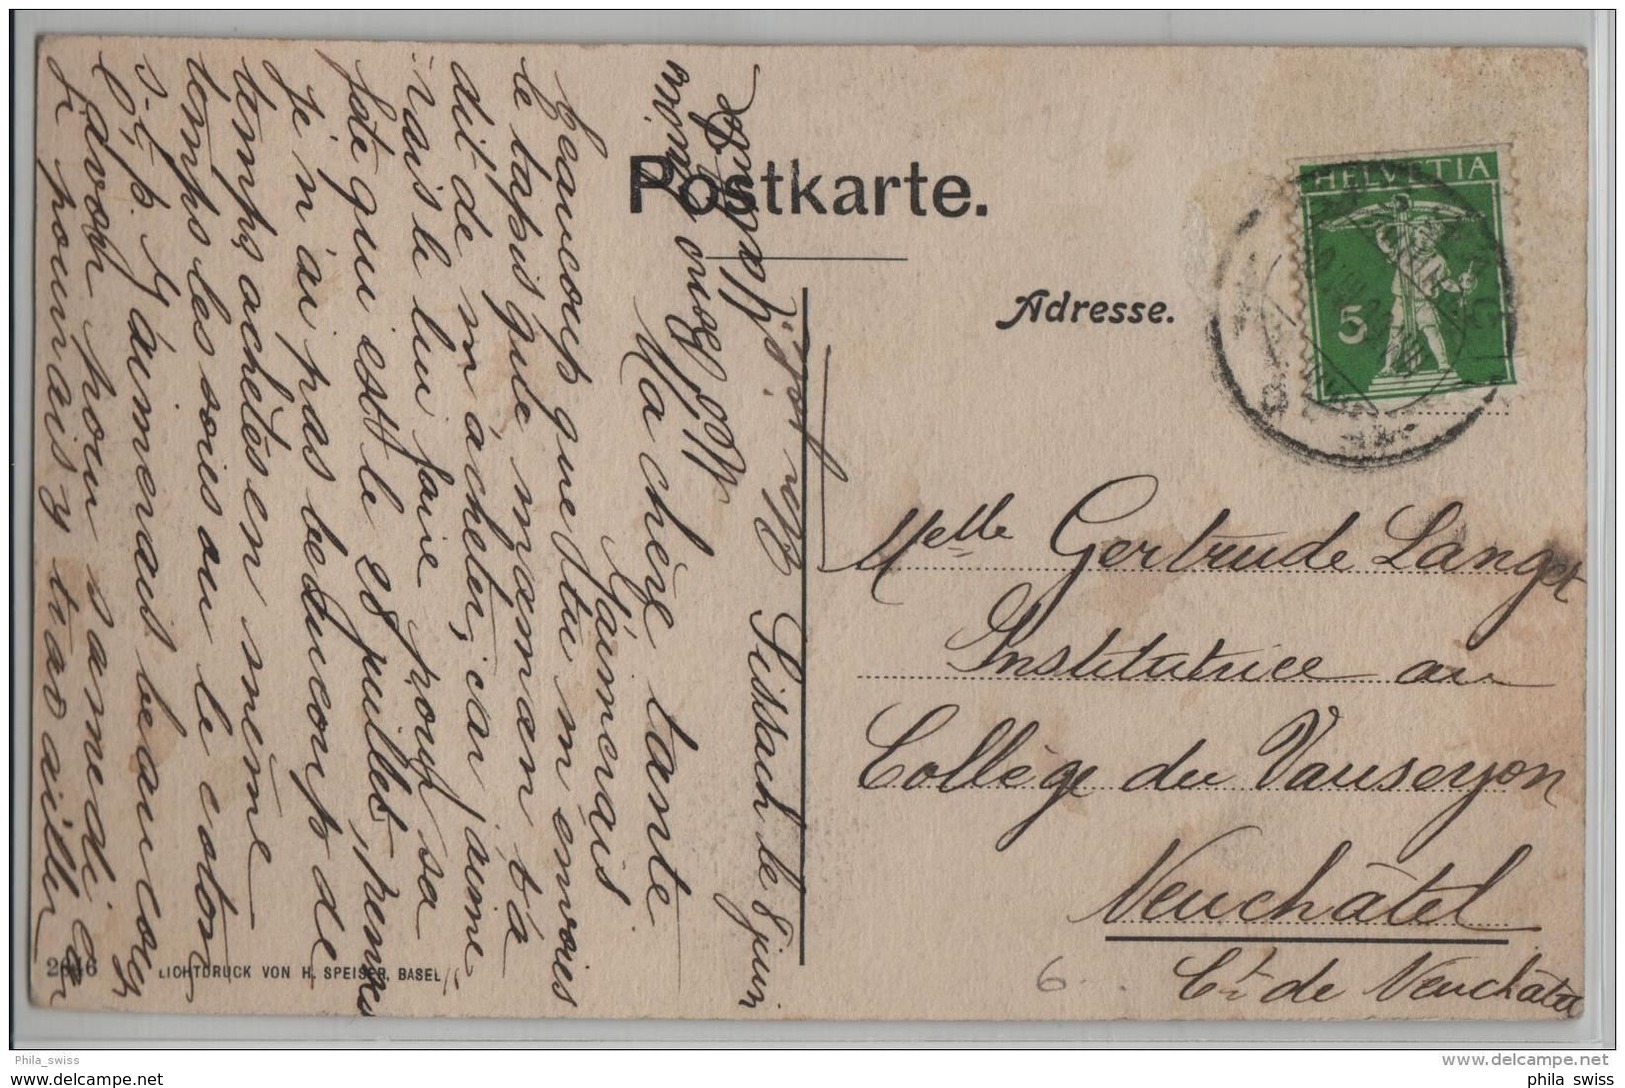 Postkarte.
Adresse.
HELVETIA
5
Melle Gertrude Langer
Institutrice au
Collège du Vauseyon
Neuchâtel
Ct de Neuchâtel
6
Sissach le 8 juin
Ma chère tante
J'aimerais
beaucoup que tu m'envoies
le tapis que maman t'a
dit de m'acheter, car j'aime-
rais le lui faire pour sa
fête qui est le 28 juillet,
Je n'ai pas beaucoup de
temps, achètes en même
temps les soies ou le coton
s. t. p. J'aimerais beaucoup
l'avoir pour samedi car
je pourrais y travailler
2646
LICHTDRUCK VON H. SPEISER, BASEL
Phila_swiss
www.delcampe.net
phila_swiss
phila_swiss